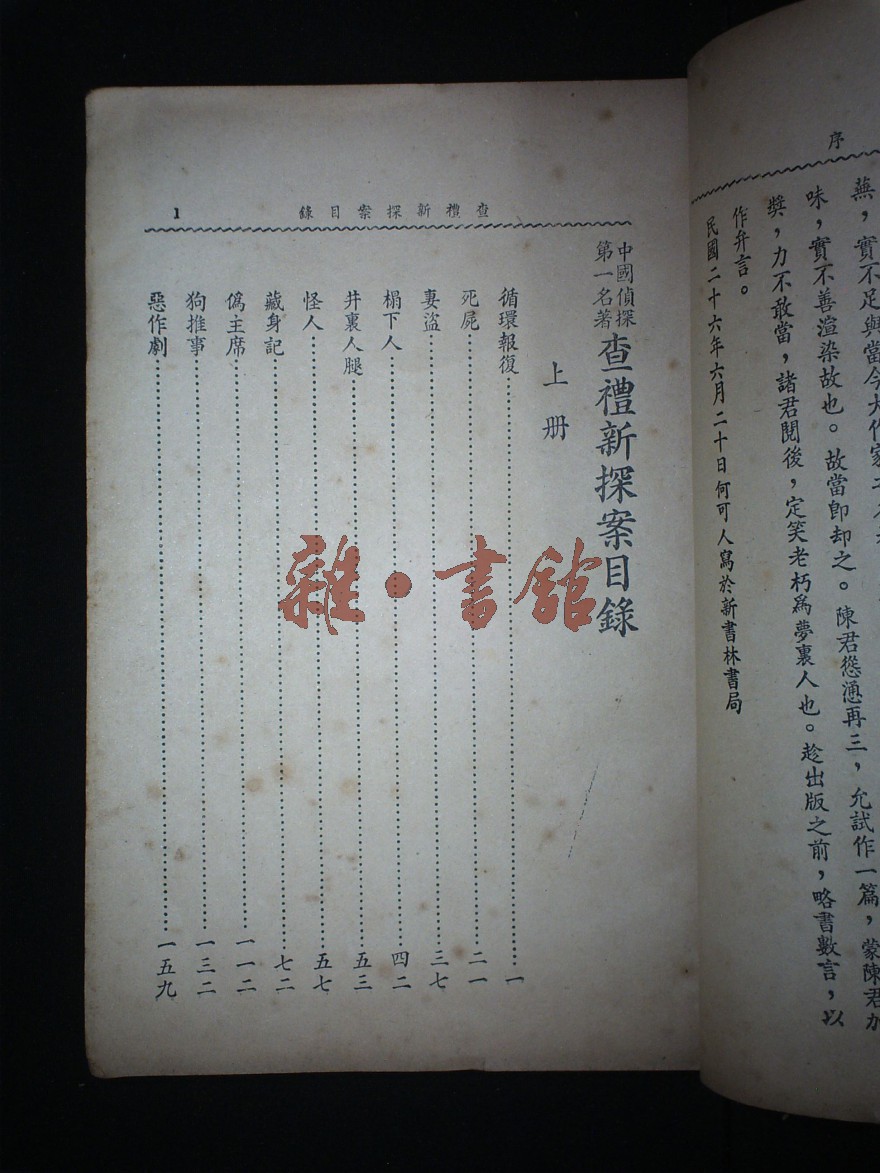 序
蕪,實不足與當今大作家
味,實不善渲染故也。故當卽却之。陳君慫慂再三,允試作一篇,蒙陳君加
獎,力不敢當,諸君閱後,定笑老朽爲夢裏人也。趁出版之前,略書數言,以
作弁言。
民國二十六年六月二十日何可人寫於新書林書局
查禮新探案目錄
1
中國偵探
第一名著
查禮新探案目錄
上册
循環報復……一
死屍……二一
妻盜……三七
榻下人……四二
井裏人腿……五三
怪人……五七
藏身記……七二
僞主席……一一二
狗推事……一三二
惡作劇……一五九
雜·書館